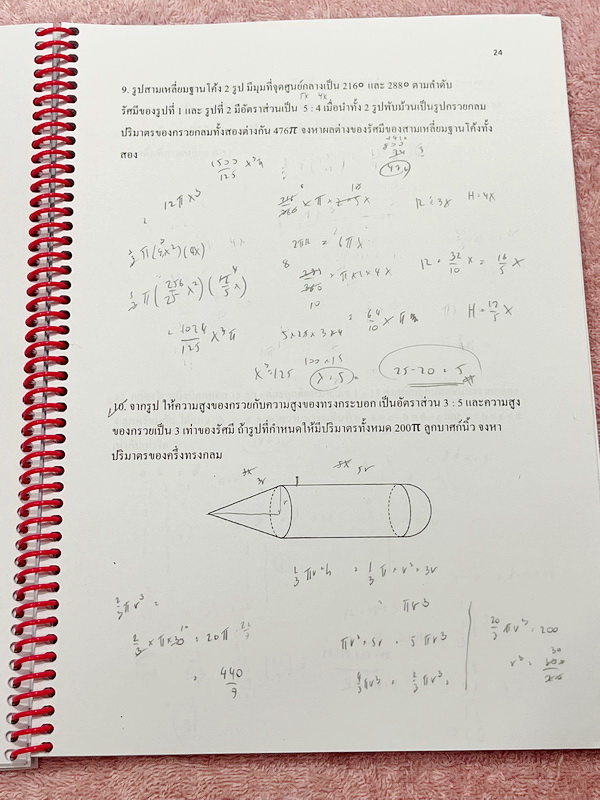 24
9. รูปสามเหลี่ยมฐานโค้ง 2 รูป มีมุมที่จุดศูนย์กลางเป็น 216° และ 288° ตามลำดับ
5x 4x
รัศมีของรูปที่ 1 และ รูปที่ 2 มีอัตราส่วนเป็น 5 : 4 เมื่อนำทั้ง 2 รูปพับม้วนเป็นรูปกรวยกลม
ปริมาตรของกรวยกลมทั้งสองต่างกัน 476π จงหาผลต่างของรัศมีของสามเหลี่ยมฐานโค้งทั้ง
สอง
1500/125 x³π
476
12πx³
R = 3x H = 4x
2πR = 6πx
R = 32/10 x = 16/5 x
1/3 π(256/25 x²)(12/5 x)
= 64/10 x π
H = 12/5 x
= 1024/125 x³π
x³ = 125
x = 5
25-20 = 5
10. จากรูป ให้ความสูงของกรวยกับความสูงของทรงกระบอก เป็นอัตราส่วน 3 : 5 และความสูง
ของกรวยเป็น 3 เท่าของรัศมี ถ้ารูปที่กำหนดให้มีปริมาตรทั้งหมด 200π ลูกบาศก์นิ้ว จงหา
ปริมาตรของครึ่งทรงกลม
3r 5r
r
1/3 πr²h = 1/3 π × r² × 3r
2/3 πr³ =
= πr³
20/3 πr³ = 200
2/3 × π × 30 = 20π
πr² × 5r = 5πr³
= 440/7